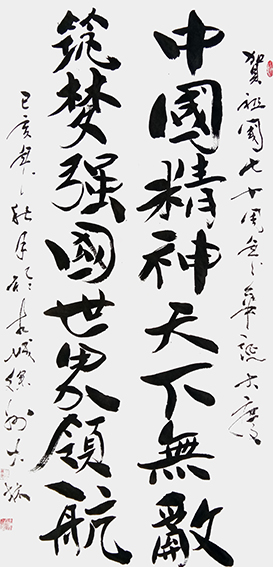 賀祖國七十周年華誕大慶
中國精神天下無敵
筑梦强國世界領航
己亥年秋月